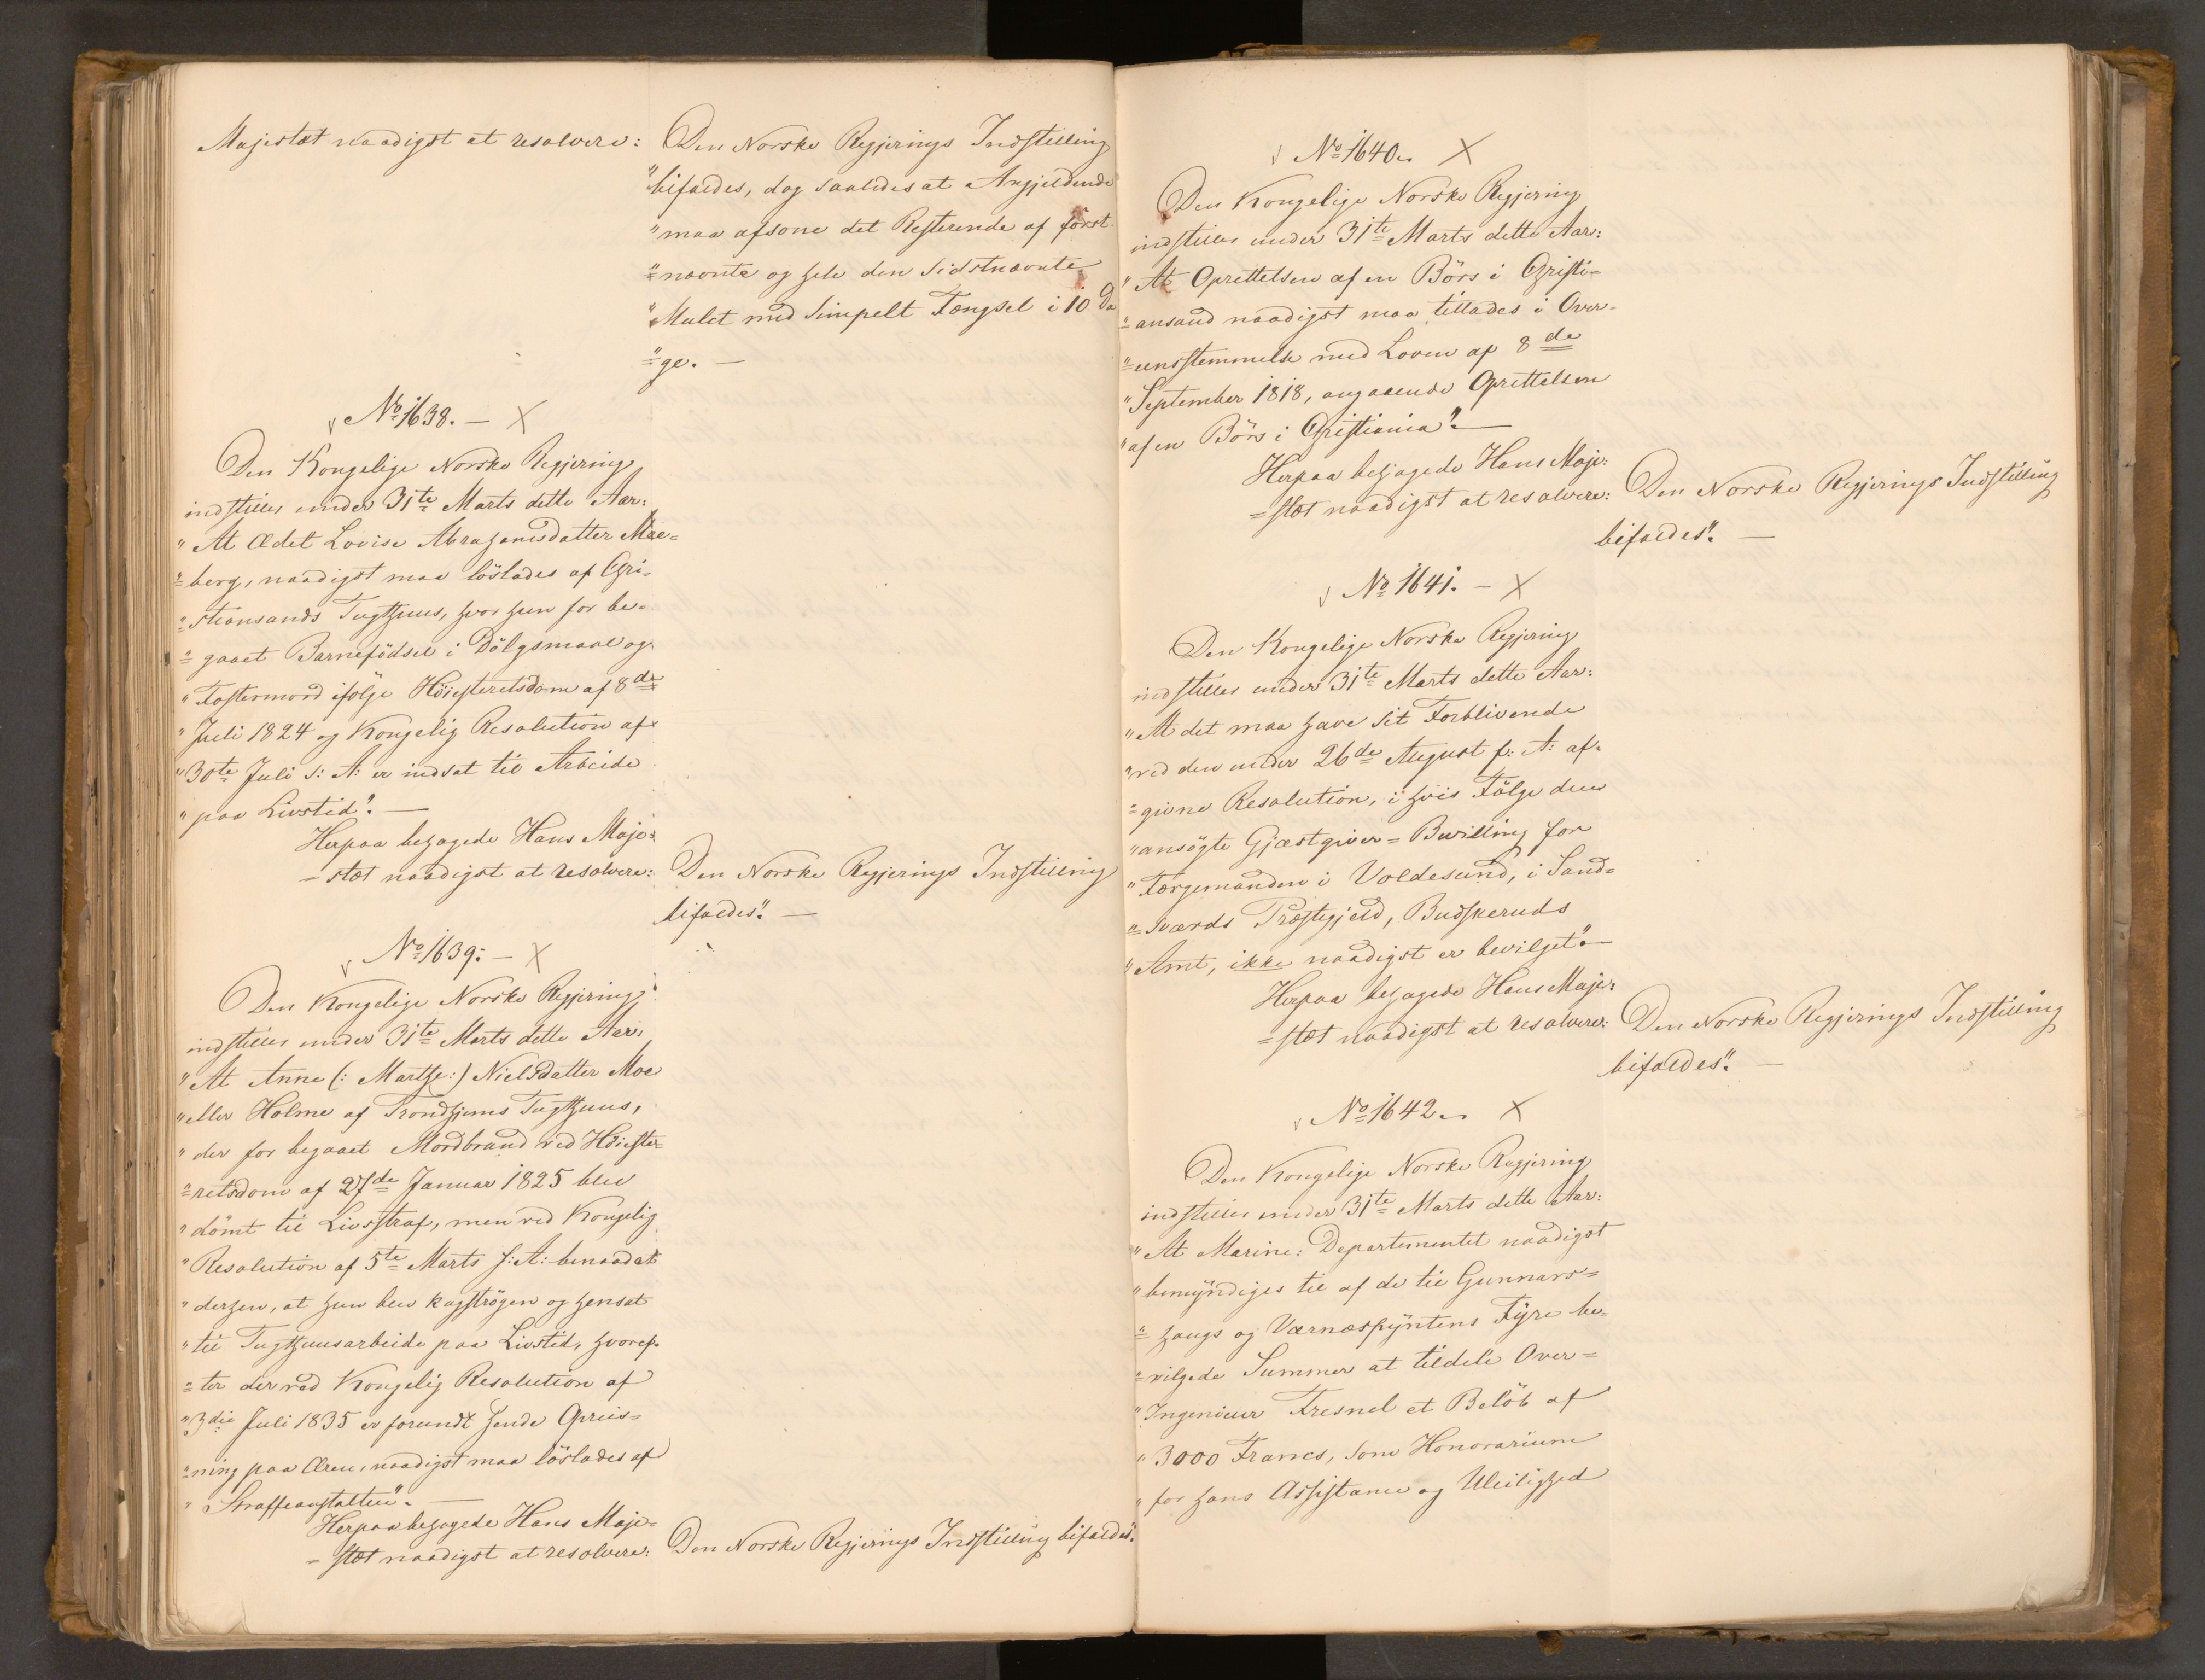 Majestæt naadigst at resolvere:
Den Norske Regjerings Indstilling
"bifaldes, dog saaledes at Angjeldende
"maa afsone det Resterende af først
"=nævnte og hele den Sidstnævnte
"Mulct med simpelt Fængsel i 10 Da
"=ge. —
No 1638. — X
Den Kongelige Norske Regjering
indstiller under 31te Marts dette Aar:
"At Ædel Lovise Abrahamsdatter
"=berg, naadigst maa löslades af Chri-
"=stiansands Tugthuus, hvor hun for be-
"=gaaet Barnefödsel i Dölgsmaal og
"Fostermord ifölge Höiesteretsdom af 8de
"Juli 1824 og Kongelig Resolution af
"30te Juli s: A: er indsat til Arbeide
"paa Livstid". —
Herpaa behagede Hans Maje-
=stæt naadigst at resolvere:
Den Norske Regjerings Indstilling
bifaldes". —
No 1639. — X
Den Kongelige Norske Regjering
indstiller under 31te Marts dette Aar:
"At Anne (: Marthe:) Nielsdatter Moe
"eller Holme af Trondhjems Tugthuus,
"der for begaaet Mordbrand ved Höieste-
"=retsdom af 27de Januar 1825 blev
"dömt til Livsstraf, men ved Kongelig
"Resolution af 5te Marts s: A: benaadet
"derhen, at hun blev kagströgen og hensat
"til Tugthuusarbeide paa Livstid, hvoref-
"=ter der ved Kongelig Resolution af
"3die Juli 1835 er forundt hende Opreis-
"=ning paa Æren, naadigst maa löslades af
"Straffeanstalten". —
Herpaa behagede Hans Maje-
=stæt naadigst at resolvere:
Den Norske Regjerings Indstilling bifaldes".
No 1640. X
Den Kongelige Norske Regjering
indstiller under 31te Marts dette Aar:
"At Oprettelsen af en Börs i Christi-
"=ansand naadigst maa tillades i Over-
"=eensstemmelse med Loven af 8de
"September 1818, angaaende Oprettelsen
"af en Börs i Christiania". —
Herpaa behagede Hans Maje-
=stæt naadigst at resolvere:
Den Norske Regjerings Indstilling
bifaldes". —
No 1641. — X
Den Kongelige Norske Regjering
indstiller under 31te Marts dette Aar:
"At det maa have sit Forblivende
"ved den under 26de August f: A: af-
"=givne Resolution, i hvis Fölge den
"ansögte Gjæstgiver=Bevilling for
"Færgemanden i Voldesund, i Sand-
"=sværds Præstegjeld, Buskeruds
"Amt, ikke naadigst er bevilget". —
Herpaa behagede Hans Maje-
=stæt naadigst at resolvere:
Den Norske Regjerings Indstilling
bifaldes". —
No 1642. X
Den Kongelige Norske Regjering
indstiller under 31te Marts dette Aar:
"At Marine: Departementet naadigst
"bemyndiges til af de til Gunnars-
"=haugs og Værnæspyntens Fyre be-
"=vilgede Summer at tildele Over-
"Ingenieur Fresnel et Belöb af
"3000 Francs, som Honorarium
"for hans Assistance og Uleilighed